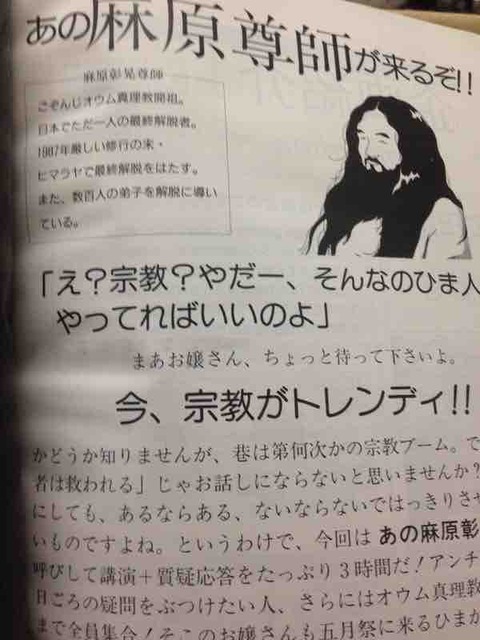 あの麻原尊師が来るぞ!!
麻原彰晃尊師
ごぞんじオウム真理教開祖。
日本でただ一人の最終解脱者。
1987年厳しい修行の末・
ヒマラヤで最終解脱をはたす。
また、数百人の弟子を解脱に導い
ている。
「え？宗教？やだー、そんなのひま人
やってればいいのよ」
まあお嬢さん、ちょっと待って下さいよ。
今、宗教がトレンディ!!
かどうか知りませんが、巷は第何次かの宗教ブーム。で
者は救われる」じゃお話しにならないと思いませんか？
にしても、あるならある、ないならないではっきりさせ
いものですよね。というわけで、今回は あの麻原彰
呼びして講演＋質疑応答をたっぷり３時間だ！アンチ
日ごろの疑問をぶつけたい人、さらにはオウム真理教
まで全員集合！そこのお嬢さんも五月祭に来るひまが